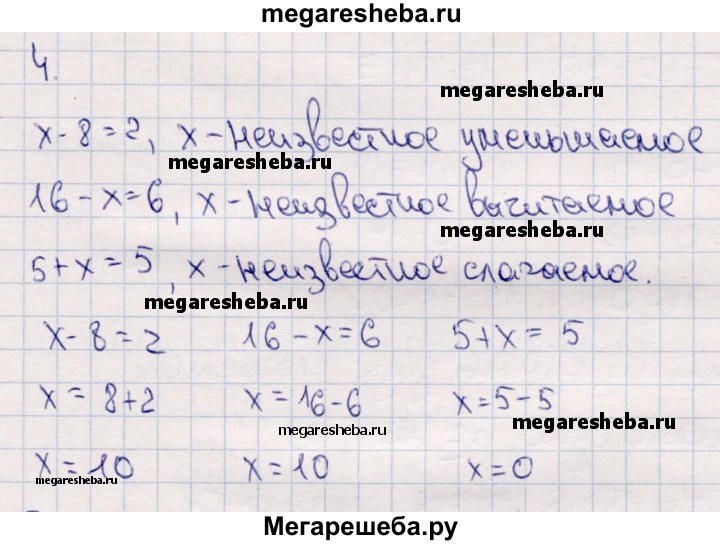 megaresheba.ru
4.
megaresheba.ru
x - 8 = 2, x - неизвестное уменьшаемое
megaresheba.ru
16 - x = 6, x - неизвестное вычитаемое
megaresheba.ru
5 + x = 5, x - неизвестное слагаемое.
megaresheba.ru
x - 8 = 2 16 - x = 6 5 + x = 5
x = 8 + 2 x = 16 - 6 x = 5 - 5
megaresheba.ru megaresheba.ru
x = 10 x = 10 x = 0
megaresheba.ru
Мегарешеба.ру